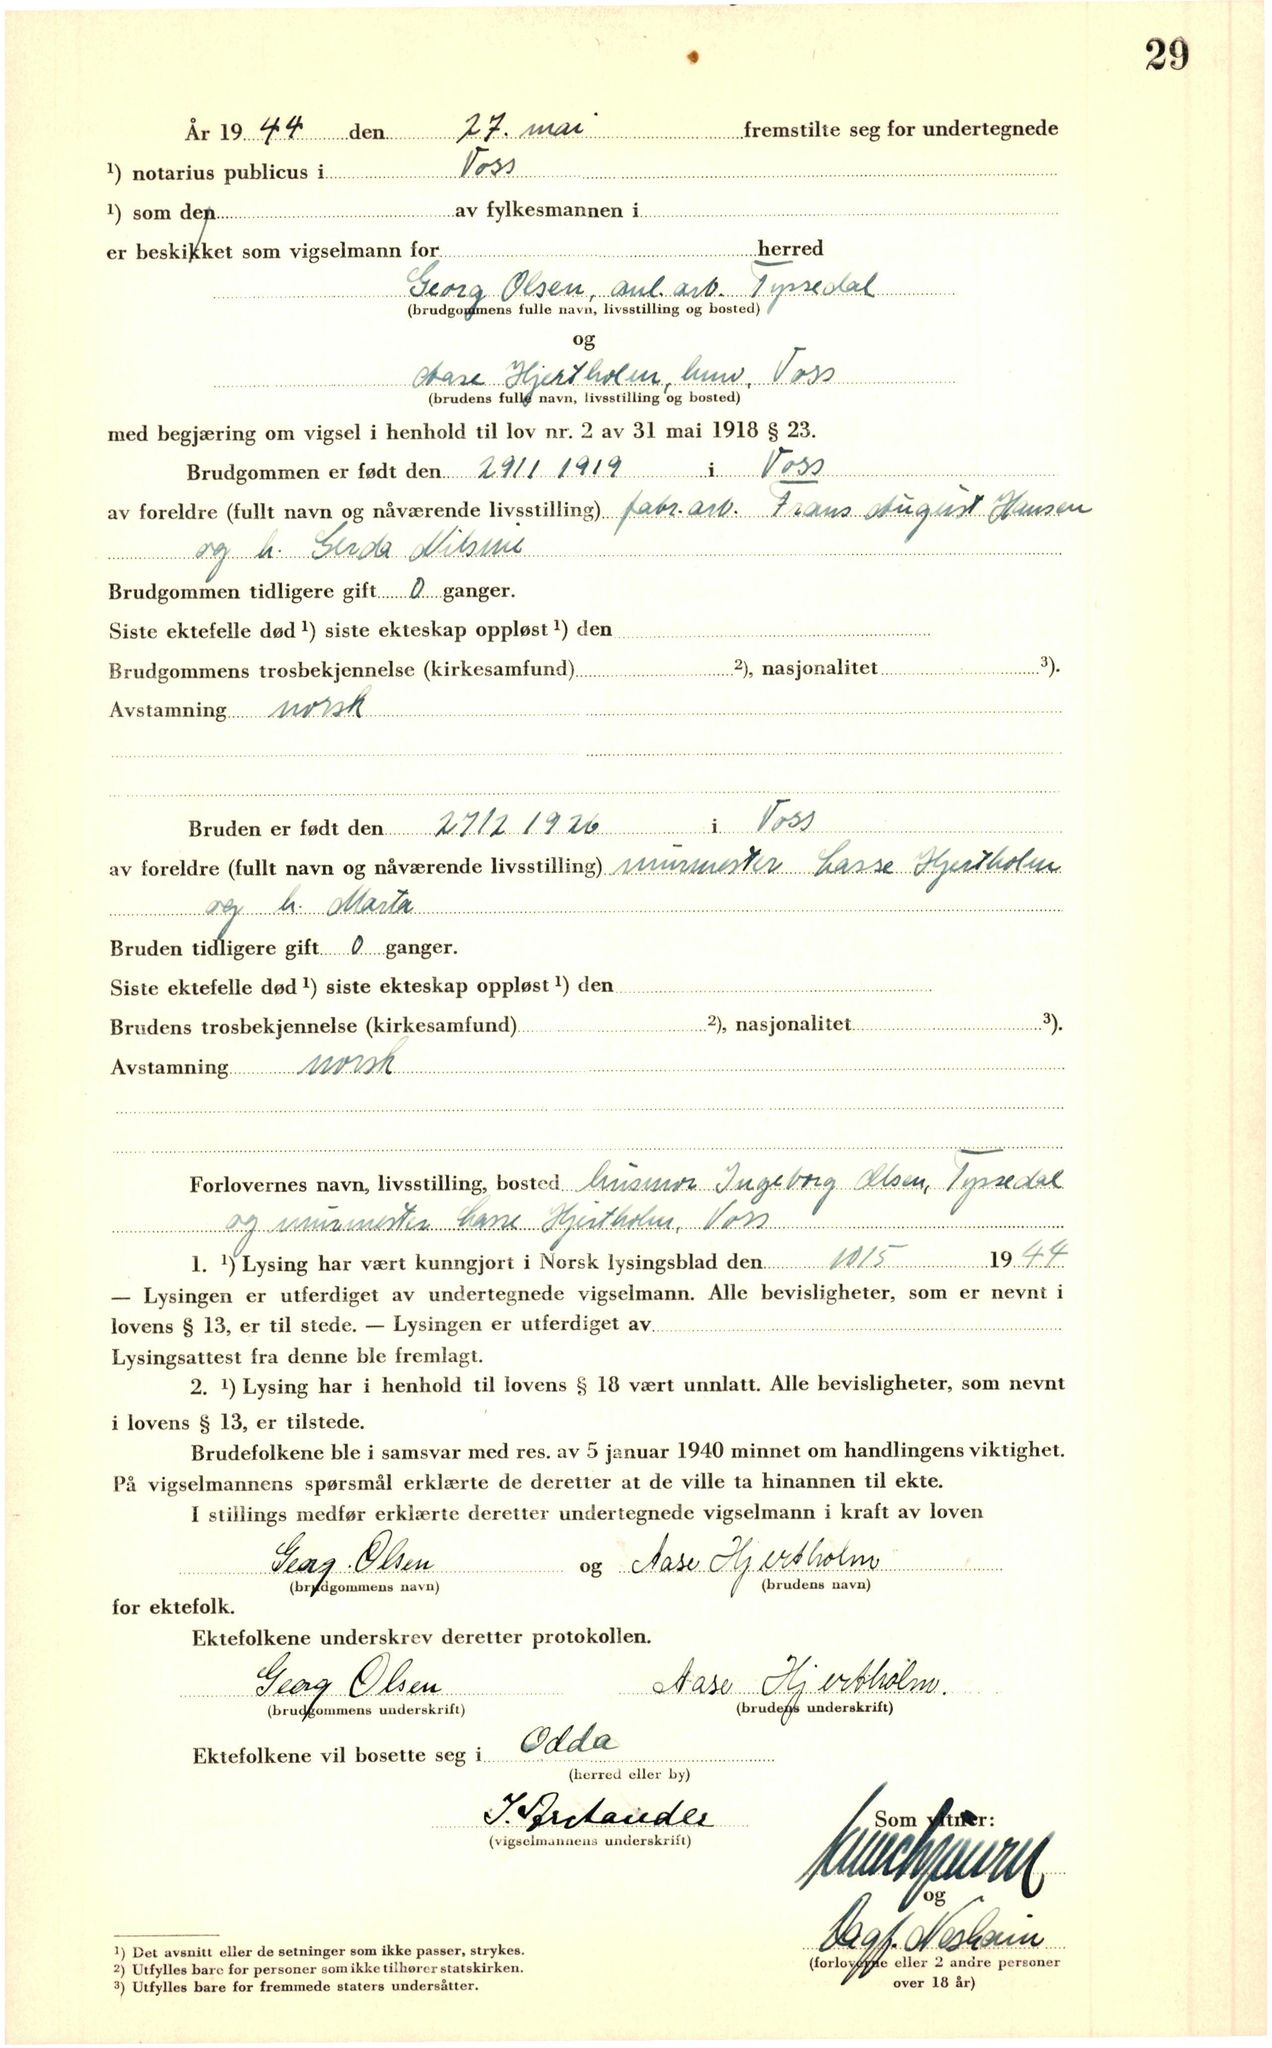 29
År 19 44 den 27. mai fremstilte seg for undertegnede
¹) notarius publicus i Voss
¹) som den av fylkesmannen i
er beskikket som vigselmann for herred
Georg Olsen, anl. arb. Tyssedal
(brudgommens fulle navn, livsstilling og bosted)
og
Aase Hjertholm, hmv, Voss
(brudens fulle navn, livsstilling og bosted)
med begjæring om vigsel i henhold til lov nr. 2 av 31 mai 1918 § 23.
Brudgommen er født den 29/1 1919 i Voss
av foreldre (fullt navn og nåværende livsstilling) fabr. arb. Frans August Hansen
og h. Gerda Nilsine
Brudgommen tidligere gift 0 ganger.
Siste ektefelle død ¹) siste ekteskap oppløst ¹) den
Brudgommens trosbekjennelse (kirkesamfund) ²), nasjonalitet ³).
Avstamning norsk
Bruden er født den 27/2 1926 i Voss
av foreldre (fullt navn og nåværende livsstilling) murmester Lasse Hjertholm
og h. Marta
Bruden tidligere gift 0 ganger.
Siste ektefelle død ¹) siste ekteskap oppløst ¹) den
Brudens trosbekjennelse (kirkesamfund) ²), nasjonalitet ³).
Avstamning norsk
Forlovernes navn, livsstilling, bosted husmor Ingeborg Olsen, Tyssedal
og murmester Lasse Hjertholm, Voss
1. ¹) Lysing har vært kunngjort i Norsk lysingsblad den 10/5 19 44
— Lysingen er utferdiget av undertegnede vigselmann. Alle bevisligheter, som er nevnt i
lovens § 13, er til stede. — Lysingen er utferdiget av
Lysingsattest fra denne ble fremlagt.
2. ¹) Lysing har i henhold til lovens § 18 vært unnlatt. Alle bevisligheter, som nevnt
i lovens § 13, er tilstede.
Brudefolkene ble i samsvar med res. av 5 januar 1940 minnet om handlingens viktighet.
På vigselmannens spørsmål erklærte de deretter at de ville ta hinannen til ekte.
I stillings medfør erklærte deretter undertegnede vigselmann i kraft av loven
Georg Olsen og Aase Hjertholm
(brudgommens navn) (brudens navn)
for ektefolk.
Ektefolkene underskrev deretter protokollen.
Georg Olsen Aase Hjertholm.
(brudgommens underskrift) (brudens underskrift)
Ektefolkene vil bosette seg i Odda
(herred eller by)
Som vitner:
(vigselmannens underskrift)
og
Dagf. Neshaim
(forloverne eller 2 andre personer
over 18 år)
¹) Det avsnitt eller de setninger som ikke passer, strykes.
²) Utfylles bare for personer som ikke tilhører statskirken.
³) Utfylles bare for fremmede staters undersåtter.